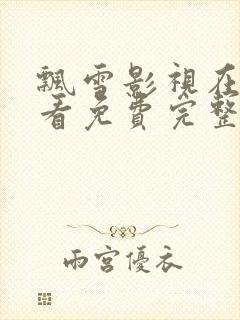 飄雪影視在
看免費完整
雨宮優衣